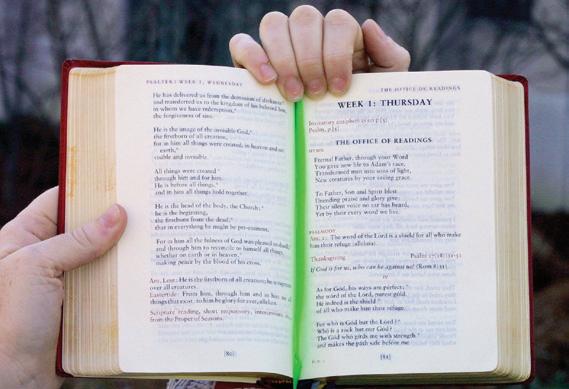 PSALTER: WEEK 1, WEDNESDAY
He has delivered us from the dominion of darkness*
and transferred us to the kingdom of his beloved Son,
in whom we have redemption,*
the forgiveness of sins.
He is the image of the invisible God,*
the firstborn of all creation,
for in him all things were created, in heaven and on
earth,*
visible and invisible.
All things were created *
through him and for him.
He is before all things,*
and in him all things hold together.
He is the head of the body, the Church;*
he is the beginning,
the firstborn from the dead,*
that in everything he might be pre-eminent.
For in him all the fulness of God was pleased to dwell,*
and through him to reconcile to himself all things,
whether on earth or in heaven,*
making peace by the blood of his cross.
Ant. Lent: He is the firstborn of all creation; he is supreme
over all creatures.
Eastertide: From him, through him and in him are all
things that exist: to him be glory for ever, alleluia.
Scripture reading, short responsory, intercessions
from the Proper of Seasons.
[80]
THE OFFICE OF READINGS
WEEK 1: THURSDAY
Invitatory antiphon
Psalm, p [3]
THE OFFICE OF READINGS
HYMN
Eternal Father, through your Word
You gave new life to Adam's race,
Transformed men into sons of light,
New creatures by your saving grace.
To Father, Son and Spirit blest
Unending praise and glory give:
Their silent voice no ear has heard,
Yet by their every word we live.
PSALMODY
Ant. 1: The word of the Lord is a shield for all who make
him their refuge (alleluia).
Thanksgiving
If God is for us, who can be against us? (Rom 8:31).
IV
As for God, his ways are perfect;*
the word of the Lord, purest gold.
He indeed is the shield *
of all who make him their refuge.
For who is God but the Lord?*
Who is a rock but our God?
The God who girds me with strength *
and makes the path safe before me
[81]